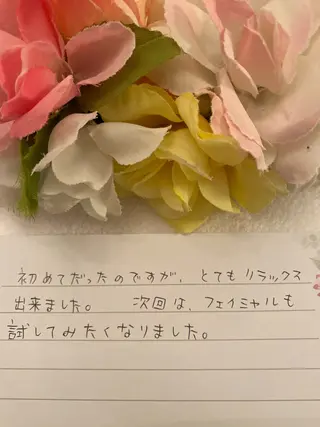 初めてだったのですが、とてもリラックス
出来ました。 次回は、フェイシャルも
試してみたくなりました。